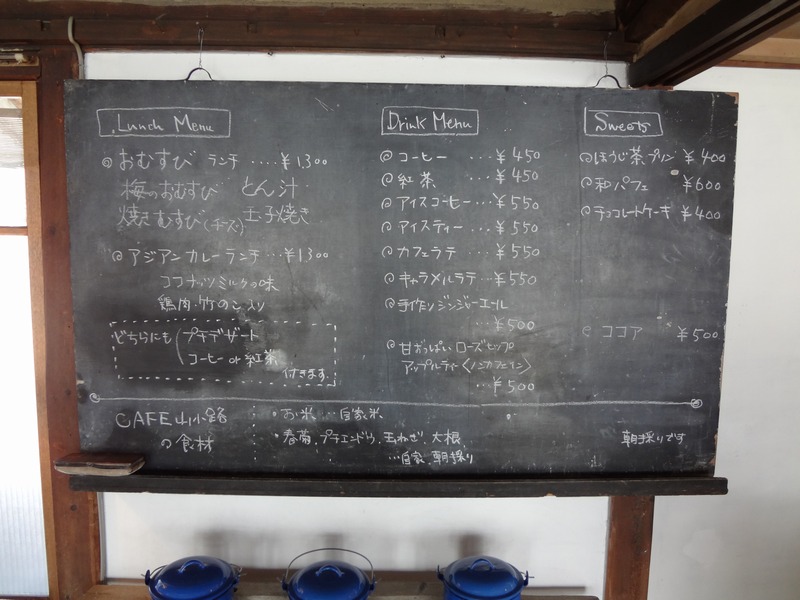 Lunch Menu
◎おむすび ランチ ....¥1,300
梅のおむすび とん汁
焼きむすび(チーズ) 玉子焼き
◎アジアンカレーランチ...¥1,300
ココナッツミルクの味
鶏肉・竹のこ入り
どちらにも プチデザート
コーヒー or 紅茶
付きます
Drink Menu
◎コーヒー ...¥450
◎紅茶 ...¥450
◎アイスコーヒー...¥550
◎アイスティー...¥550
◎カフェラテ...¥550
◎キャラメルラテ...¥550
◎手作りジンジャーエール
...¥500
◎甘ずっぱいローズヒップ
アップルティー〈ノンカフェイン〉
...¥500
Sweets
◎ほうじ茶プリン ¥400
◎和パフェ ¥600
◎チョコレートケーキ ¥400
◎ココア ¥500
CAFE山小路
の食材
・お米...自家米
・春菊、プチエンドウ、玉ねぎ、大根
...自家 朝採り
朝採りです